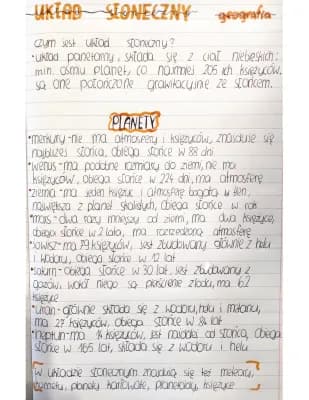 UKŁAD SŁONECZNY geografia
czym jest układ słoneczny?
•układ planetarny, składa się z ciał niebeskich:
min. ośmiu planet, co najmniej 205 ich księżyców,
są one połączone grawitacyjnie ze słońcem.
PLANETY
•merkury - nie ma atmosfery i księżyców, znajduje się
najbliżej słońca, obiega słońce w 88 dni
•wenus - ma podobne rozmiary do ziemi, nie ma
księżyców, obiega słońce w 224 dni, ma atmosferę
•ziemia - ma jeden księżyc i atmosferę bogatą w tlen,
największa z planet skalistych, obiega słońce w rok
•mars - dwa razy mniejszy od ziemi, ma dwa księżyce,
obiega słońce w 2 lata, ma rozrzedzoną atmosferę
•jowisz - ma 79 księżyców, jest zbudowany głównie z helu
i wodoru, obiega słońce w 12 lat
•saturn - obiega słońce w 30 lat, jest zbudowany z
gazów, wokół niego są pierścienie z lodu, ma 62
księżyce
•uran - głównie składa się z wodoru, helu i metanu,
ma 27 księżyców, obiega słońce w 84 lat
•neptun - ma 14 księżyców, jest najdalej od słońca, obiega
słońce w 165 lat, składa się z wodoru i helu
w układzie słonecznym znajdują się też meteory,
komety, planety karłowate, planetoidy, księżyce